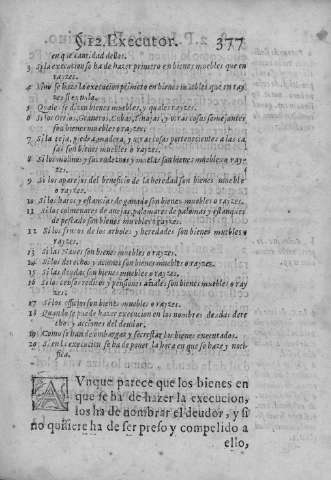 §.12. Executor. 377
en que cantidad dellos.
3 Si la execucion se ha de hazer primero en bienes muebles que en
rayzes.
4 Sino se haze la execucion primero en bienes muebles que en ray
zes si es nula.
5 Quales se dizen bienes muebles, y quales rayzes.
6 Si los Orrios, Graneros, Cubas, Tinajas, y otras cosas semejantes
son bienes muebles o rayzes.
7 Si la teja, piedra, madera, y otras cosas pertenecientes a las ca
sas son bienes muebles o rayzes.
8 Si los molinos y sus rodeznos y muelas son bienes muebles o ray-
zes.
9 Si los aparejos del beneficio de la heredad son bienes mueble
o rayzes.
10 Si los hatos y estancias de ganado son bienes muebles o rayzes.
11 Si colmenares de avejas, palomares de palomas y estanques
de pescado son bienes muebles o rayzes.
12 Si los frutos de los arboles y heredades son bienes muebles o
rayzes.
13 Si las Naves son bienes muebles o rayzes.
14 Si los derechos y aciones son bienes muebles o rayzes.
15 Si las deudas son bienes muebles o rayzes.
16 Si los censos reditos y pensiones añales son bienes muebles o
rayzes.
17 Si los oficios son bienes muebles o rayzes.
18 Quando se puede hazer execucion en los nombres deudas dere
chos y acciones del deudor.
19 Como se han de embargar y secrestar los bienes executados.
20 Si en la execucion se ha de poner la hora en que se haze y noti-
fica.
AVnque parece que los bienes en
que se ha de hazer la execucion,
los ha de nombrar el deudor, y si
no quisiere ha de ser preso y compelido a
ello,